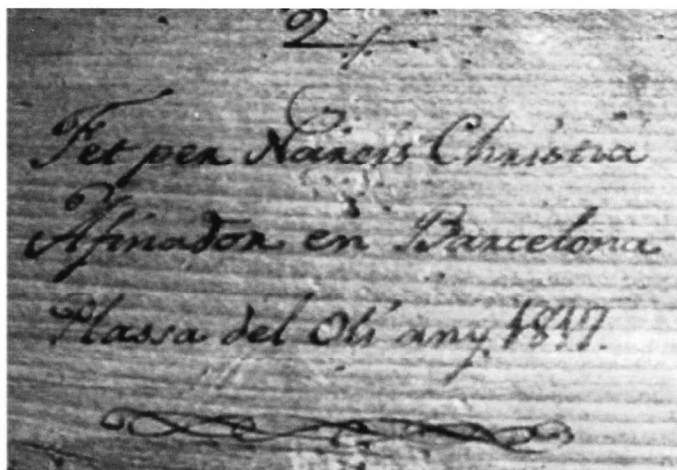 2
Fet per Narcis Christia
Afinador en Barcelona
Plassa del Oli any 1817.